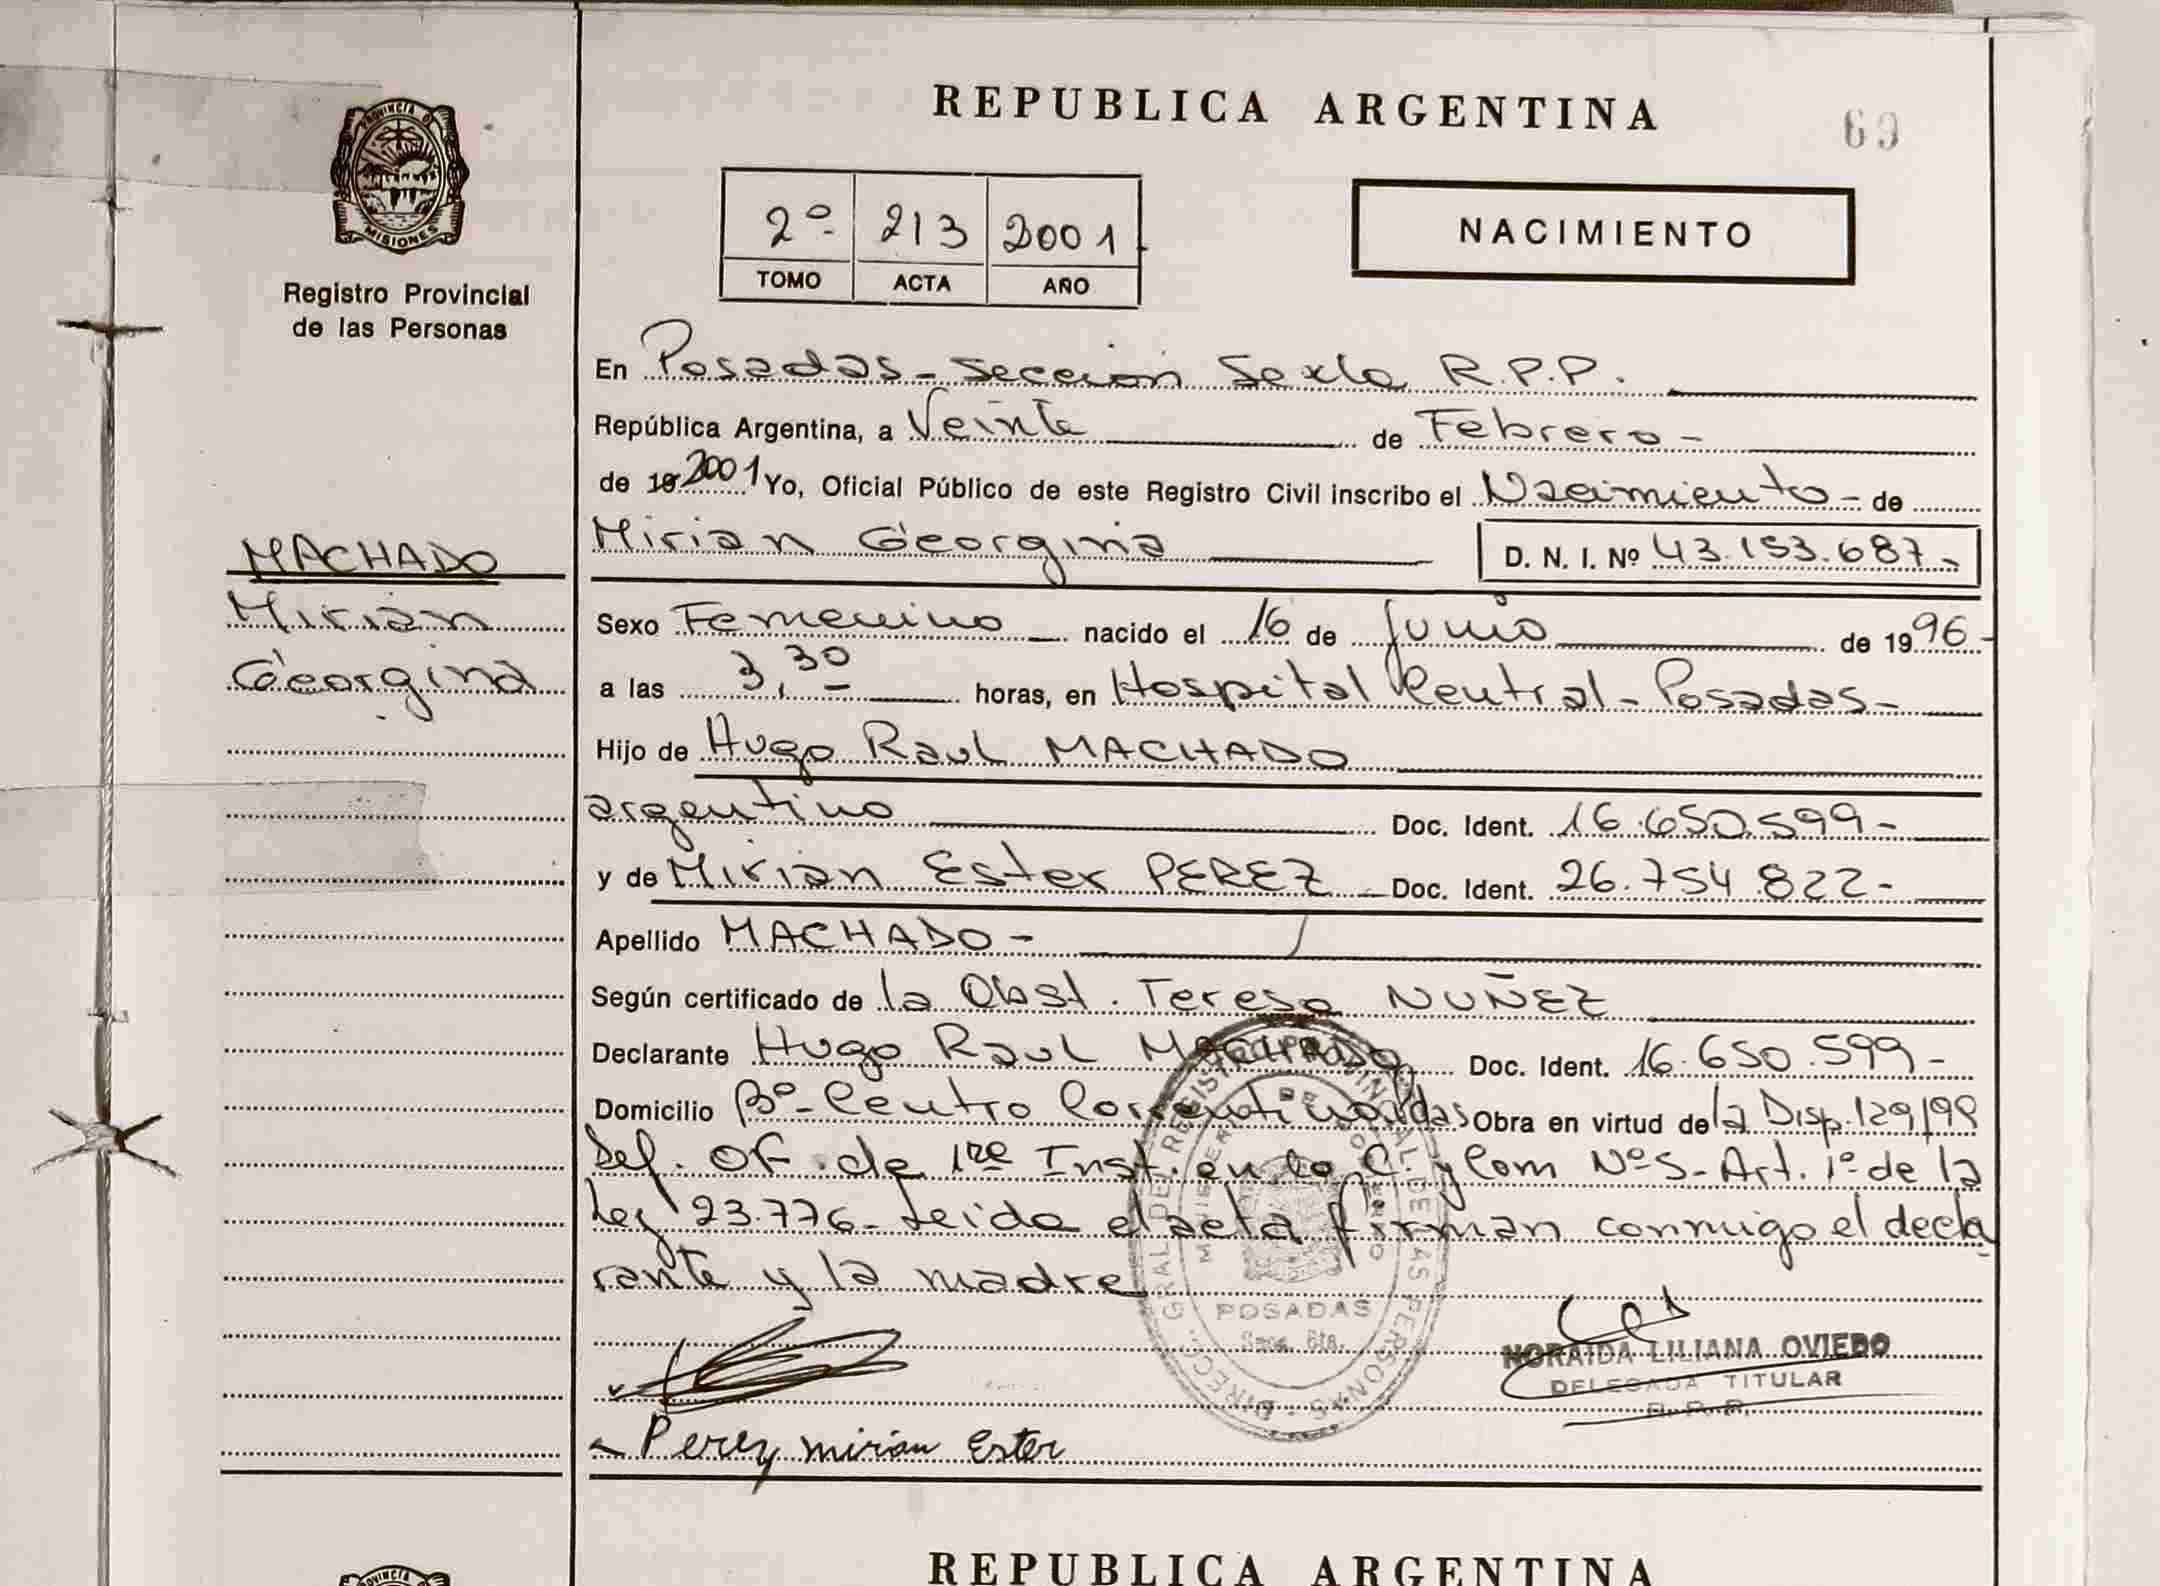 REPUBLICA ARGENTINA
69
PROVINCIA D
MISIONES
Registro Provincial
de las Personas
2º- 213 2001
TOMO ACTA AÑO
NACIMIENTO
En Posadas - Seccion Sexta R.P.P.
República Argentina, a Veinte de Febrero -
de 19 2001 Yo, Oficial Público de este Registro Civil inscribo el Nacimiento - de
MACHADO
Mirian
Georgina
Mirian Georgina D. N. I. Nº 43.153.687-
Sexo Femenino nacido el 16 de Junio de 1996-
a las 3,30 horas, en Hospital Central - Posadas -
Hijo de Hugo Raul MACHADO
argentino Doc. Ident. 16.650.599-
y de Mirian Ester PEREZ Doc. Ident. 26.754.822-
Apellido MACHADO -
Según certificado de la Obst. Teresa NUÑEZ
Declarante Hugo Raul MACHADO Doc. Ident. 16.650.599-
Domicilio Bº- Centro Obra en virtud de la Disp. 129/99
Def. Of. de 1ra Inst. en lo C. y Com Nº5- Art. 1º de la
Ley 23.776- Leida el acta firman conmigo el decla
rante y la madre
DIRECC. GRAL DEL REGISTRO PROVINCIAL DE LAS PERSONAS
POSADAS
Secc. 6ta.
NORAIDA LILIANA OVIEDO
DELEGADA TITULAR
R. P. P.
Perez mirian Ester
PROVINCIA
REPUBLICA ARGENTINA